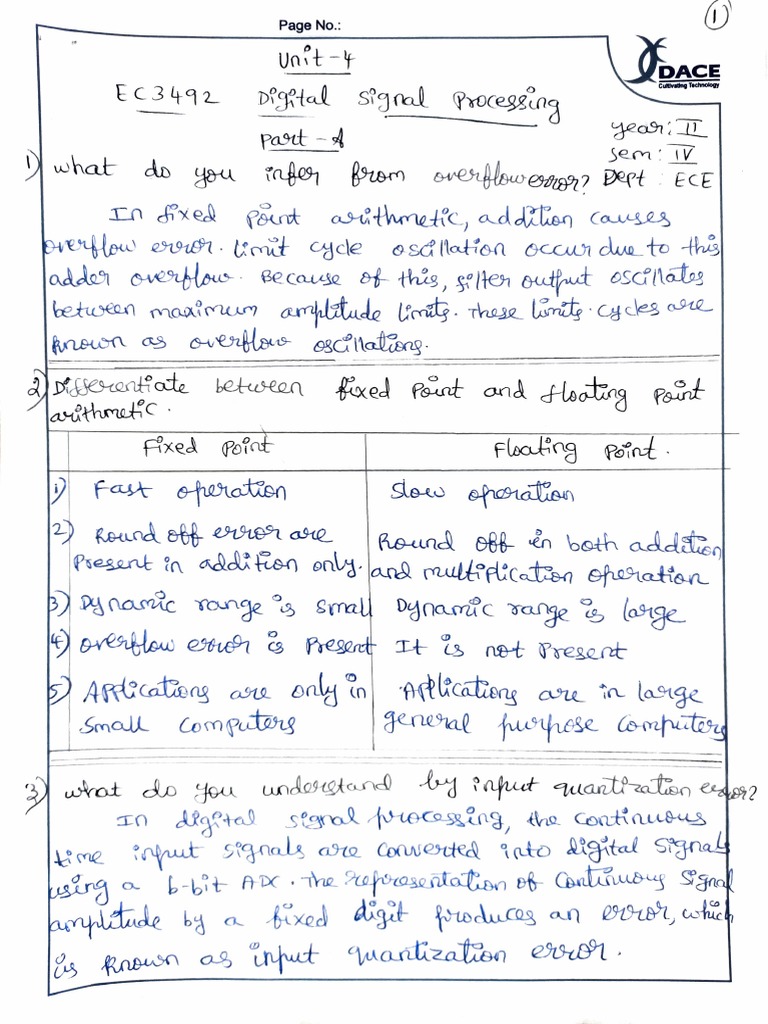 Page No.:
1
DACE
Cultivating Technology
Unit-4
EC3492 Digital Signal Processing
Part-A
year: II
sem: IV
Dept: ECE
1) What do you infer from overflow error?
In fixed point arithmetic, addition causes
overflow error. Limit cycle oscillation occur due to this
adder overflow. Because of this, filter output oscillates
between maximum amplitude limits. These limits. cycles are
known as overflow oscillations.
2) Differentiate between fixed point and floating point
arithmetic.
Fixed Point Floating Point.
1) Fast operation Slow operation
2) Round off error are Round off in both addition
Present in addition only. and multiplication operation
3) Dynamic range is small Dynamic range is large
4) Overflow error is Present It is not Present
5) Applications are only in Applications are in large
small computers general purpose computers
3) What do you understand by input quantization error?
In digital signal processing, the continuous
time input signals are converted into digital signals
using a b-bit ADC. The representation of continuous signal
amplitude by a fixed digit produces an error, which
is known as input quantization error.